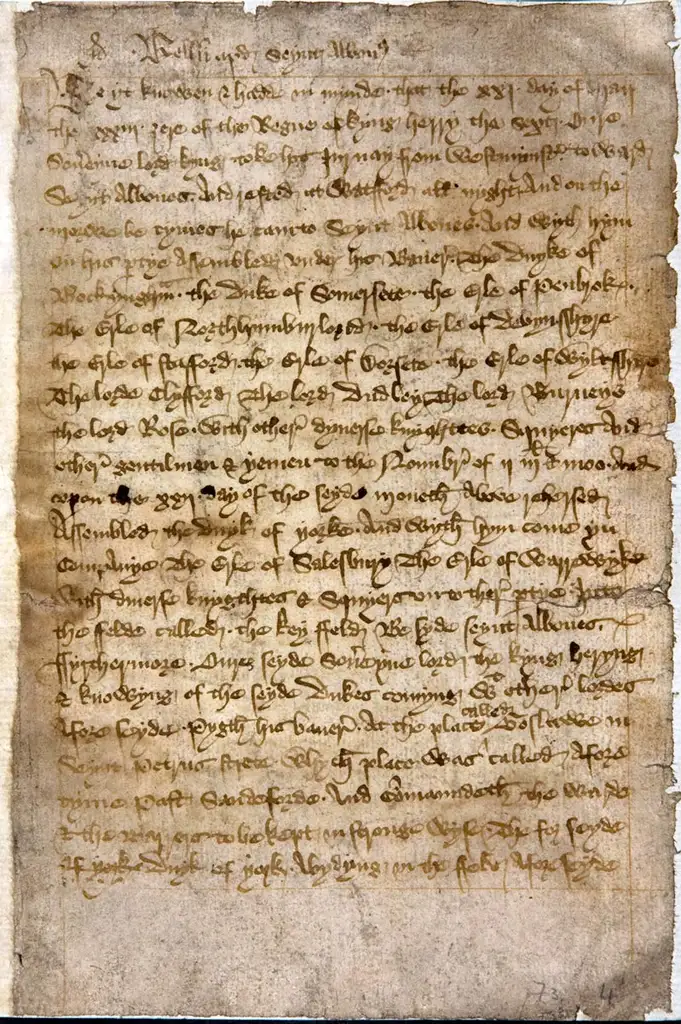 Bellū apd Seynt Albons
Be yt knowen & hadde in mynde. that the xxi. day of may
the xxxiii. zere of the Regne of kyng herry the sext. Oure
Souereyne lord kyng toke his Iurnay from Westmynster. toward
Seynt Albones. And rested at Watford all nyght. And on the
morwe be tymes he cam to Seynt Albones. And wyth hym
on his ptye Assembled vnder his Baner. The Duyke of
Bockyngham. the Duke of Somersete. the Erle of Penbrok.
The Erle of Northhumburlond. the Erle of Devynsshyre
the Erle of Stafford. the Erle of Dorsete. the Erle of Wyltsshyre
The lorde Clyfford The lord Dudley The lord Burneys
the lord Rose. With other dyuerse knyghttes. Squyeres And
other gentilmen & yemen to the Nounbr of ii ml & moo. And
vpon the xxii. day of the seyde moneth Above rehersed
Assembled the Duyk of yorke. And wyth hym come yn
Companye The Erle of Salesbury The Erle of Warrewyke
With diuerse knyghttes & Squyers vnto ther ptye Into
the felde called. the key ffeld Besyde seynt Albones.
ffyrthermore. Oure seyde Souereyne lord the kyng heryng
& knowyng of the seyde Dukes comyng wt other lordes
Afore seyde. Pygth his baner. At the place called Boslowe in
Seynt Petrus strete Whych place was called Afore
tyme Past Sandeforde. And Comaundeth the Warde
& the to be kept in stronge wyse. The for seyde
of yorke Duyk of york. Abydyng in the ffeld Afore seyde
73 4